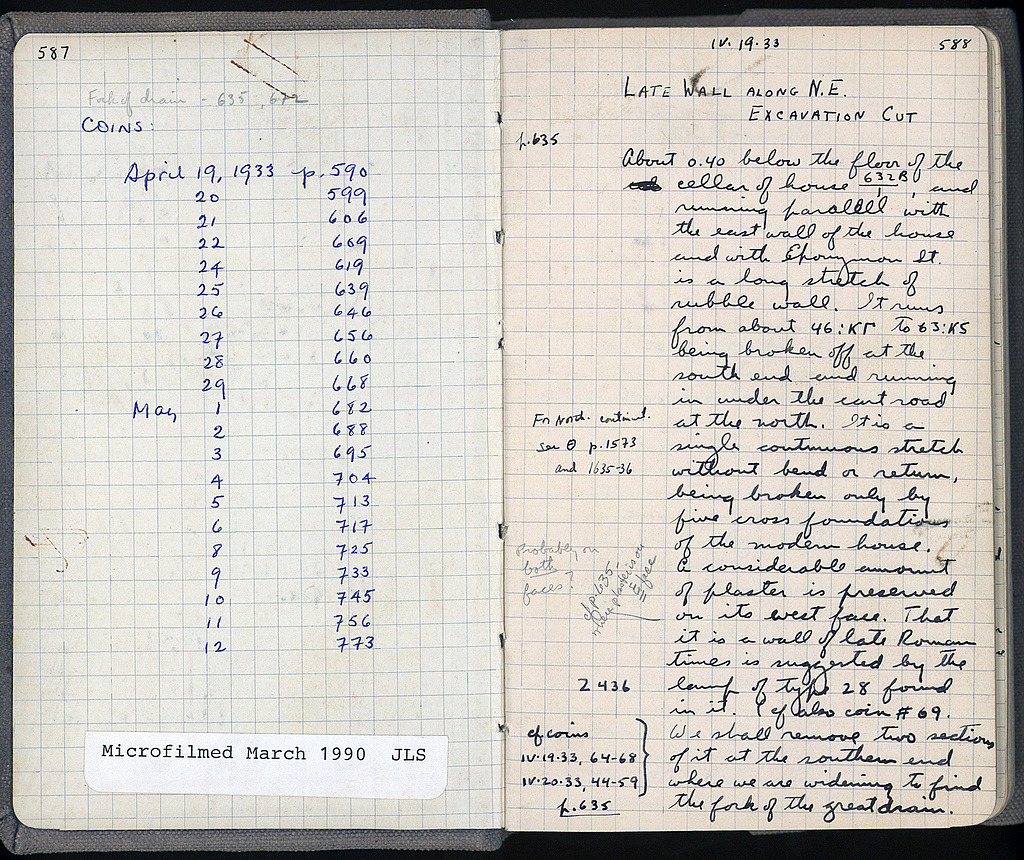 587
Fork of drain - 635, 672
COINS:
April 19, 1933 p. 590
20 599
21 606
22 609
24 619
25 639
26 646
27 656
28 660
29 668
May 1 682
2 688
3 695
4 704
5 713
6 717
8 725
9 733
10 745
11 756
12 773
Microfilmed March 1990 JLS
IV.19.33 588
LATE WALL ALONG N.E.
EXCAVATION CUT
p.635
About 0.40 below the floor of the
cellar of house 632B, and
running parallel with
the east wall of the house
and with Eponymon St.
is a long stretch of
rubble wall. It runs
from about 46:ΚΓ to 63:Κ5
being broken off at the
south end and running
in under the cart road
For North. continuat.
at the north. It is a
see Θ p.1573
single continuous stretch
and 1635-36
without bend or return,
being broken only by
five cross foundations
of the modern house.
Probably on
both
faces?
cf p.635,
more plaster is on
E face
A considerable amount
of plaster is preserved
on its west face. That
it is a wall of late Roman
times is suggested by the
Σ 436
lamp of type 28 found
in it. (cf also coin #69.
cf coins
IV.19.33, 64-68
IV.20.33, 44-59
p.635
We shall remove two sections
of it at the southern end
where we are widening to find
the fork of the great drain.